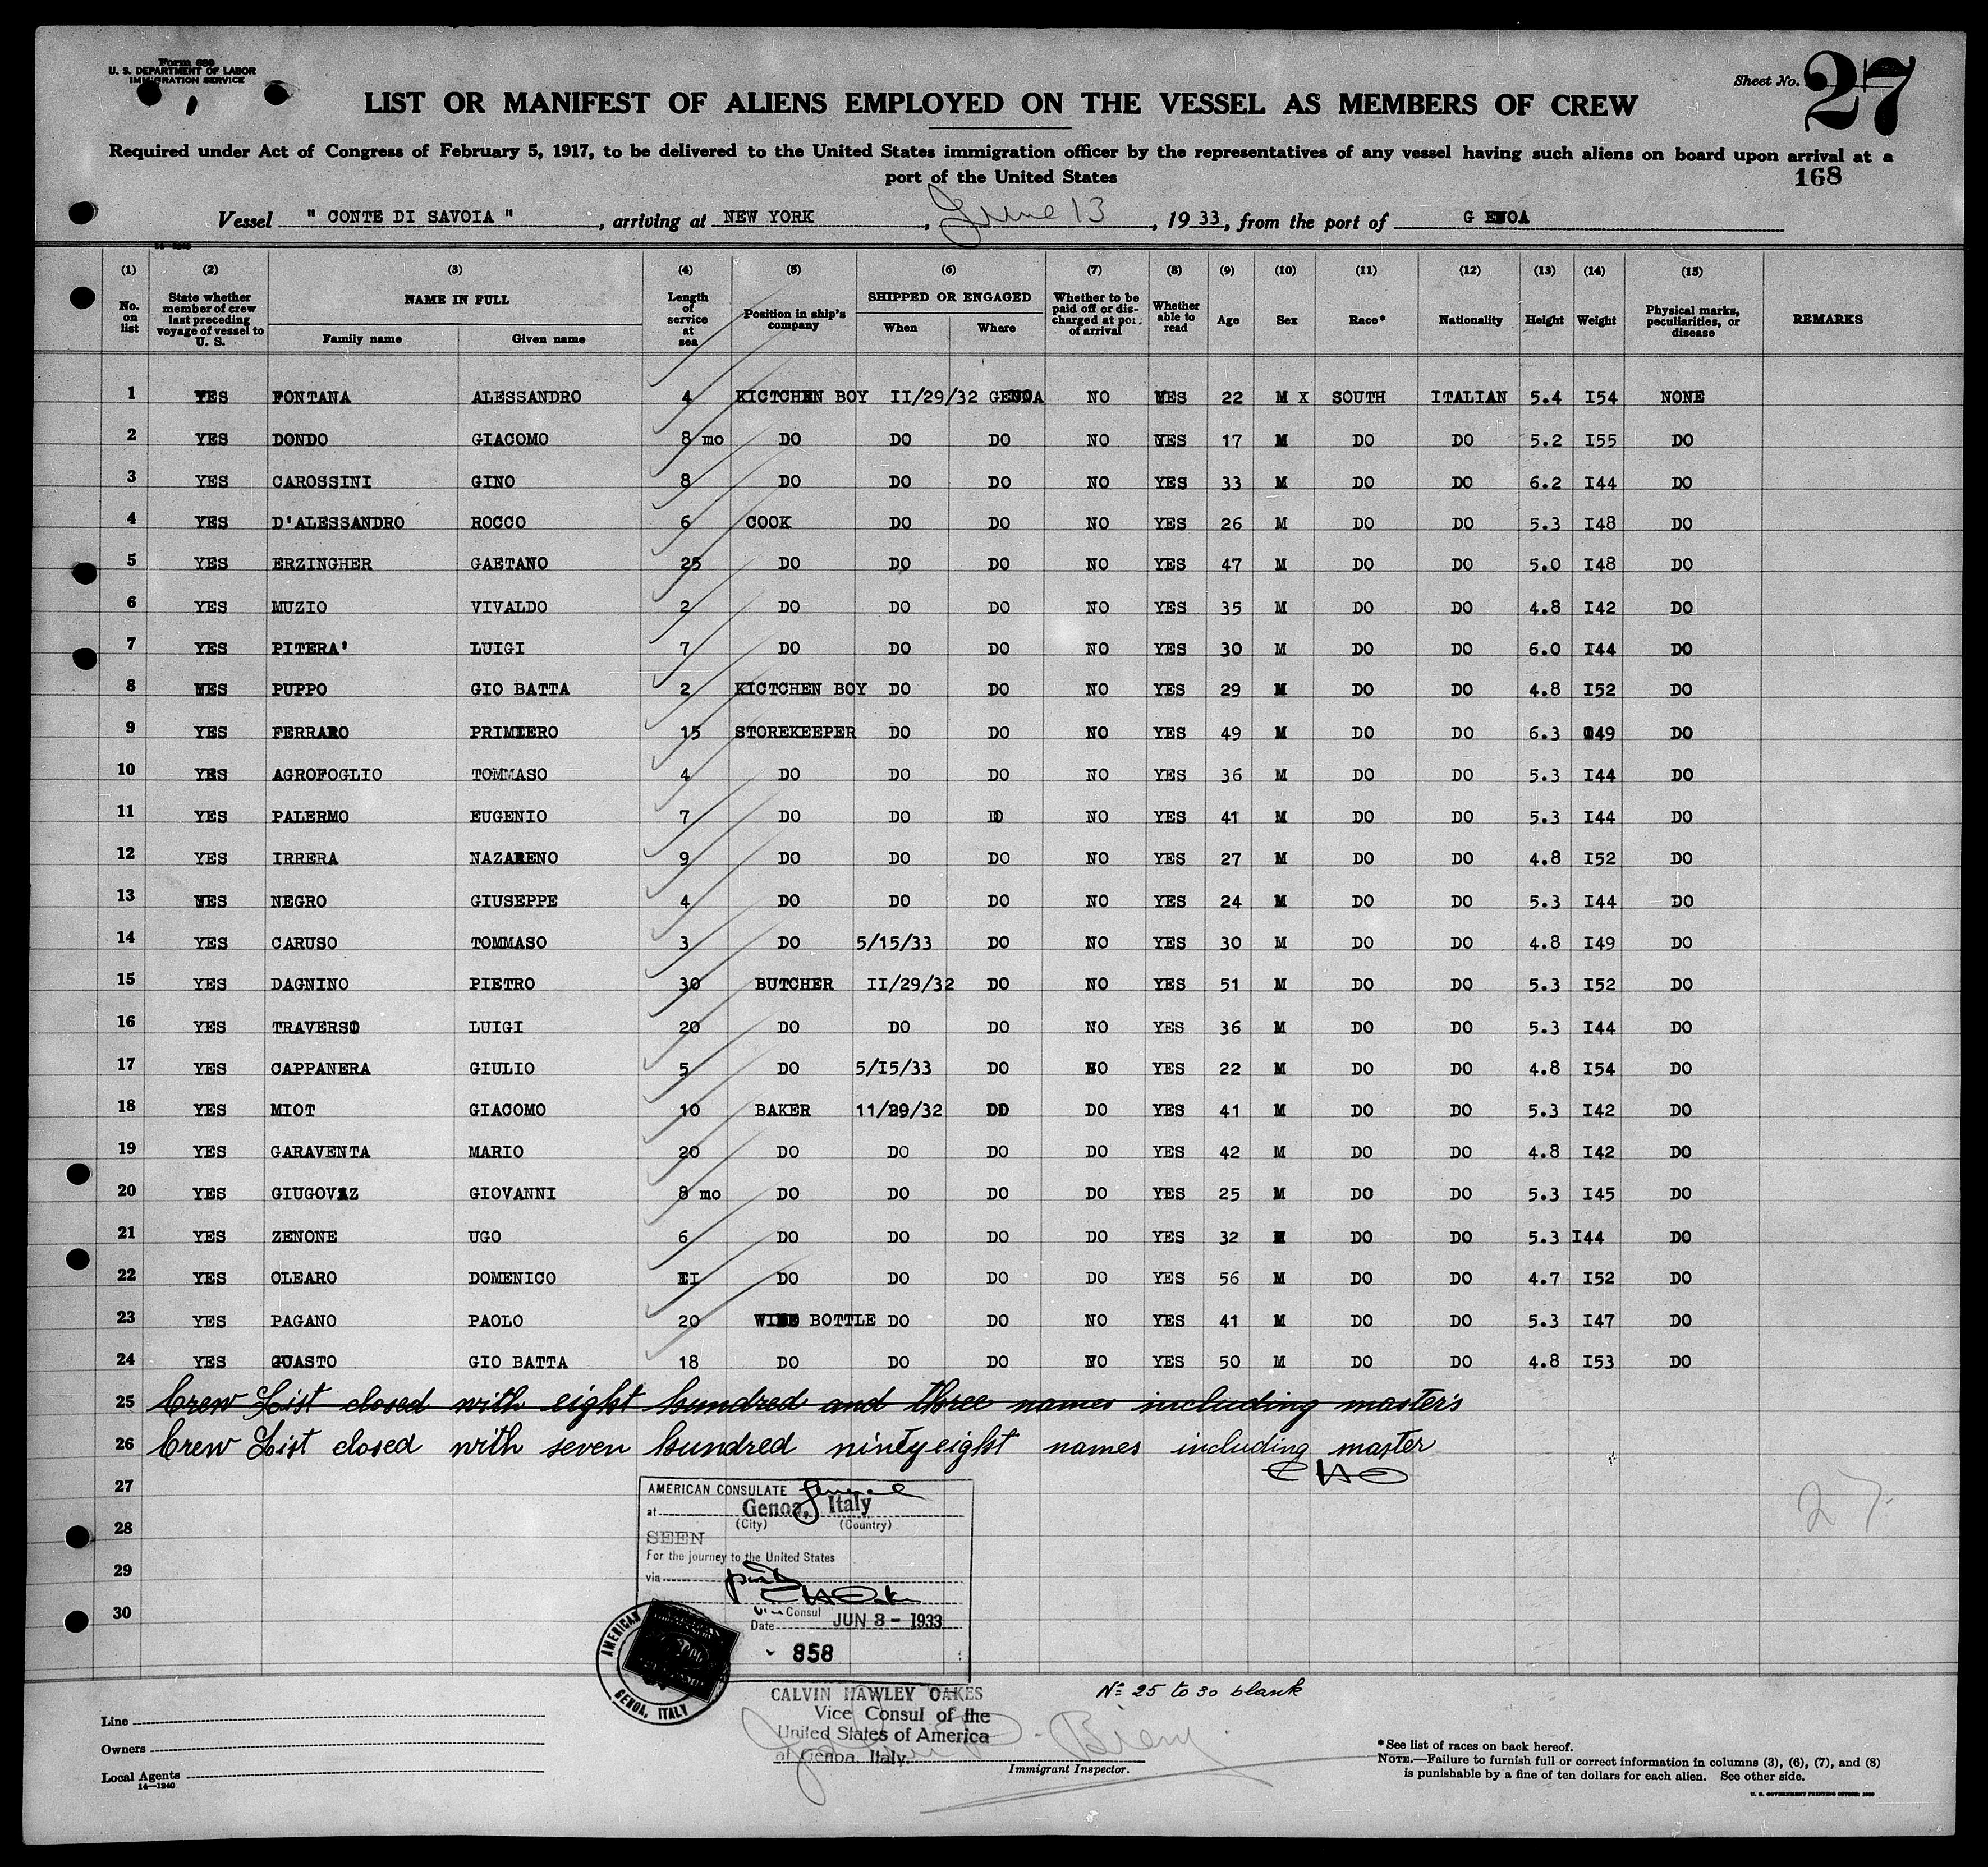 Form 680
U. S. DEPARTMENT OF LABOR
IMMIGRATION SERVICE
Sheet No. 27
LIST OR MANIFEST OF ALIENS EMPLOYED ON THE VESSEL AS MEMBERS OF CREW
Required under Act of Congress of February 5, 1917, to be delivered to the United States immigration officer by the representatives of any vessel having such aliens on board upon arrival at a
port of the United States
168
Vessel " CONTE DI SAVOIA ", arriving at NEW YORK, June 13, 1933, from the port of GENOA
(1) (2) (3) (4) (5) (6) (7) (8) (9) (10) (11) (12) (13) (14) (15)
No. on list State whether member of crew last preceding voyage of vessel to U. S. NAME IN FULL Family name Given name Length of service at sea Position in ship's company SHIPPED OR ENGAGED When Where Whether to be paid off or discharged at port of arrival Whether able to read Age Sex Race* Nationality Height Weight Physical marks, peculiarities, or disease REMARKS
1 YES FONTANA ALESSANDRO 4 KICTCHEN BOY II/29/32 GENOA NO YES 22 M X SOUTH ITALIAN 5.4 I54 NONE
2 YES DONDO GIACOMO 8 mo DO DO DO NO YES 17 M DO DO 5.2 I55 DO
3 YES CAROSSINI GINO 8 DO DO DO NO YES 33 M DO DO 6.2 I44 DO
4 YES D'ALESSANDRO ROCCO 6 COOK DO DO NO YES 26 M DO DO 5.3 I48 DO
5 YES ERZINGHER GAETANO 25 DO DO DO NO YES 47 M DO DO 5.0 I48 DO
6 YES MUZIO VIVALDO 2 DO DO DO NO YES 35 M DO DO 4.8 I42 DO
7 YES PITERA' LUIGI 7 DO DO DO NO YES 30 M DO DO 6.0 I44 DO
8 YES PUPPO GIO BATTA 2 KICTCHEN BOY DO DO NO YES 29 M DO DO 4.8 I52 DO
9 YES FERRARO PRIMIERO 15 STOREKEEPER DO DO NO YES 49 M DO DO 6.3 I49 DO
10 YES AGROFOGLIO TOMMASO 4 DO DO DO NO YES 36 M DO DO 5.3 I44 DO
11 YES PALERMO EUGENIO 7 DO DO D NO YES 41 M DO DO 5.3 I44 DO
12 YES IRRERA NAZARENO 9 DO DO DO NO YES 27 M DO DO 4.8 I52 DO
13 YES NEGRO GIUSEPPE 4 DO DO DO NO YES 24 M DO DO 5.3 I44 DO
14 YES CARUSO TOMMASO 3 DO 5/15/33 DO NO YES 30 M DO DO 4.8 I49 DO
15 YES DAGNINO PIETRO 30 BUTCHER II/29/32 DO NO YES 51 M DO DO 5.3 I52 DO
16 YES TRAVERSO LUIGI 20 DO DO DO NO YES 36 M DO DO 5.3 I44 DO
17 YES CAPPANERA GIULIO 5 DO 5/I5/33 DO NO YES 22 M DO DO 4.8 I54 DO
18 YES MIOT GIACOMO 10 BAKER 11/29/32 DO DO YES 41 M DO DO 5.3 I42 DO
19 YES GARAVENTA MARIO 20 DO DO DO DO YES 42 M DO DO 4.8 I42 DO
20 YES GIUGOVAZ GIOVANNI 8 mo DO DO DO DO YES 25 M DO DO 5.3 I45 DO
21 YES ZENONE UGO 6 DO DO DO DO YES 32 M DO DO 5.3 I44 DO
22 YES OLEARO DOMENICO DO DO DO DO YES 56 M DO DO 4.7 I52 DO
23 YES PAGANO PAOLO 20 WINE BOTTLE DO DO NO YES 41 M DO DO 5.3 I47 DO
24 YES GUASTO GIO BATTA 18 DO DO DO NO YES 50 M DO DO 4.8 I53 DO
25 Crew List closed with eight hundred and three names including master's
26 Crew List closed with seven hundred ninety eight names including master
CHO
27
28
29
30
27
AMERICAN CONSULATE General
at Genoa, Italy
(City) (Country)
SEEN
For the journey to the United States
via
Vice Consul
Date JUN 3 - 1933
858
AMERICAN
GENOA, ITALY
CALVIN HAWLEY OAKES
Vice Consul of the
United States of America
at Genoa, Italy.
Nº 25 to 30 blank
Line
Owners
Local Agents
14—1240
Immigrant Inspector.
*See list of races on back hereof.
NOTE.—Failure to furnish full or correct information in columns (3), (6), (7), and (8)
is punishable by a fine of ten dollars for each alien. See other side.